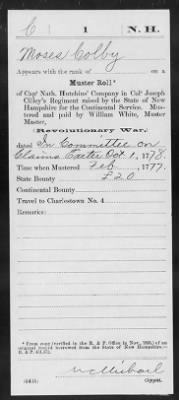 C 1 N. H.
Moses Colby
Appears with the rank of on a
Muster Roll*
of Capt Nath. Hutchins' Company in Col Joseph
Cilley's Regiment raised by the State of New
Hampshire for the Continental Service. Mus-
tered and paid by William White, Muster
Master,
(Revolutionary War,)
dated In Committee on
Claims Exeter Oct. 1, 1778.
Time when Mustered Feb , 1777.
State Bounty £20
Continental Bounty
Travel to Charlestown No. 4
Remarks:
* From copy (verified in the R. & P. Office in Nov., of an
original record borrowed from the State of New Hampshire—
R. & P.
Copyist.